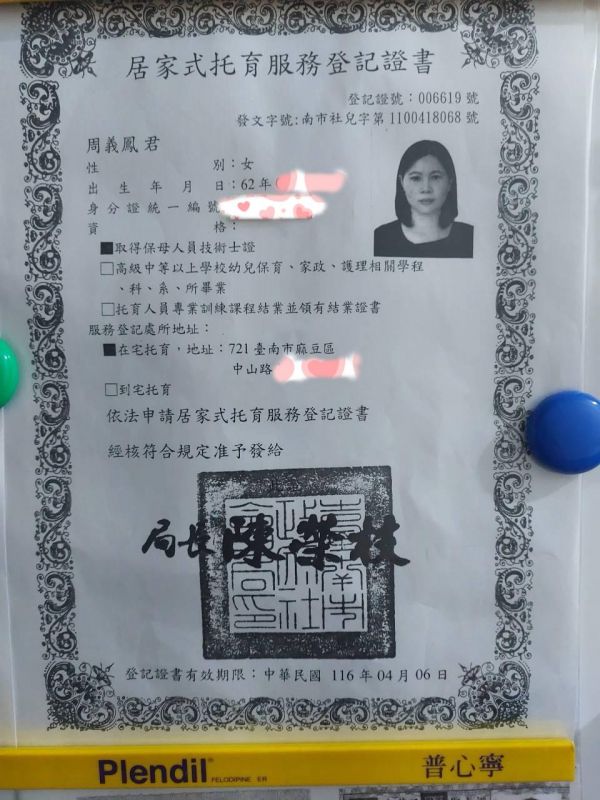 居家式托育服務登記證書
登記證號：006619 號
發文字號：南市社兒字第 1100418068 號
周義鳳 君
性別：女
出生年月日：62 年
身分證統一編號
資格：
■取得保母人員技術士證
□高級中等以上學校幼兒保育、家政、護理相關學程
、科、系、所畢業
□托育人員專業訓練課程結業並領有結業證書
服務登記處所地址：
■在宅托育，地址：721 臺南市麻豆區
中山路
□到宅托育
依法申請居家式托育服務登記證書
經核符合規定准予發給
局長 陳榮枝
登記證書有效期限：中華民國 116 年 04 月 06 日
Plendil® FELODIPINE ER 普心寧